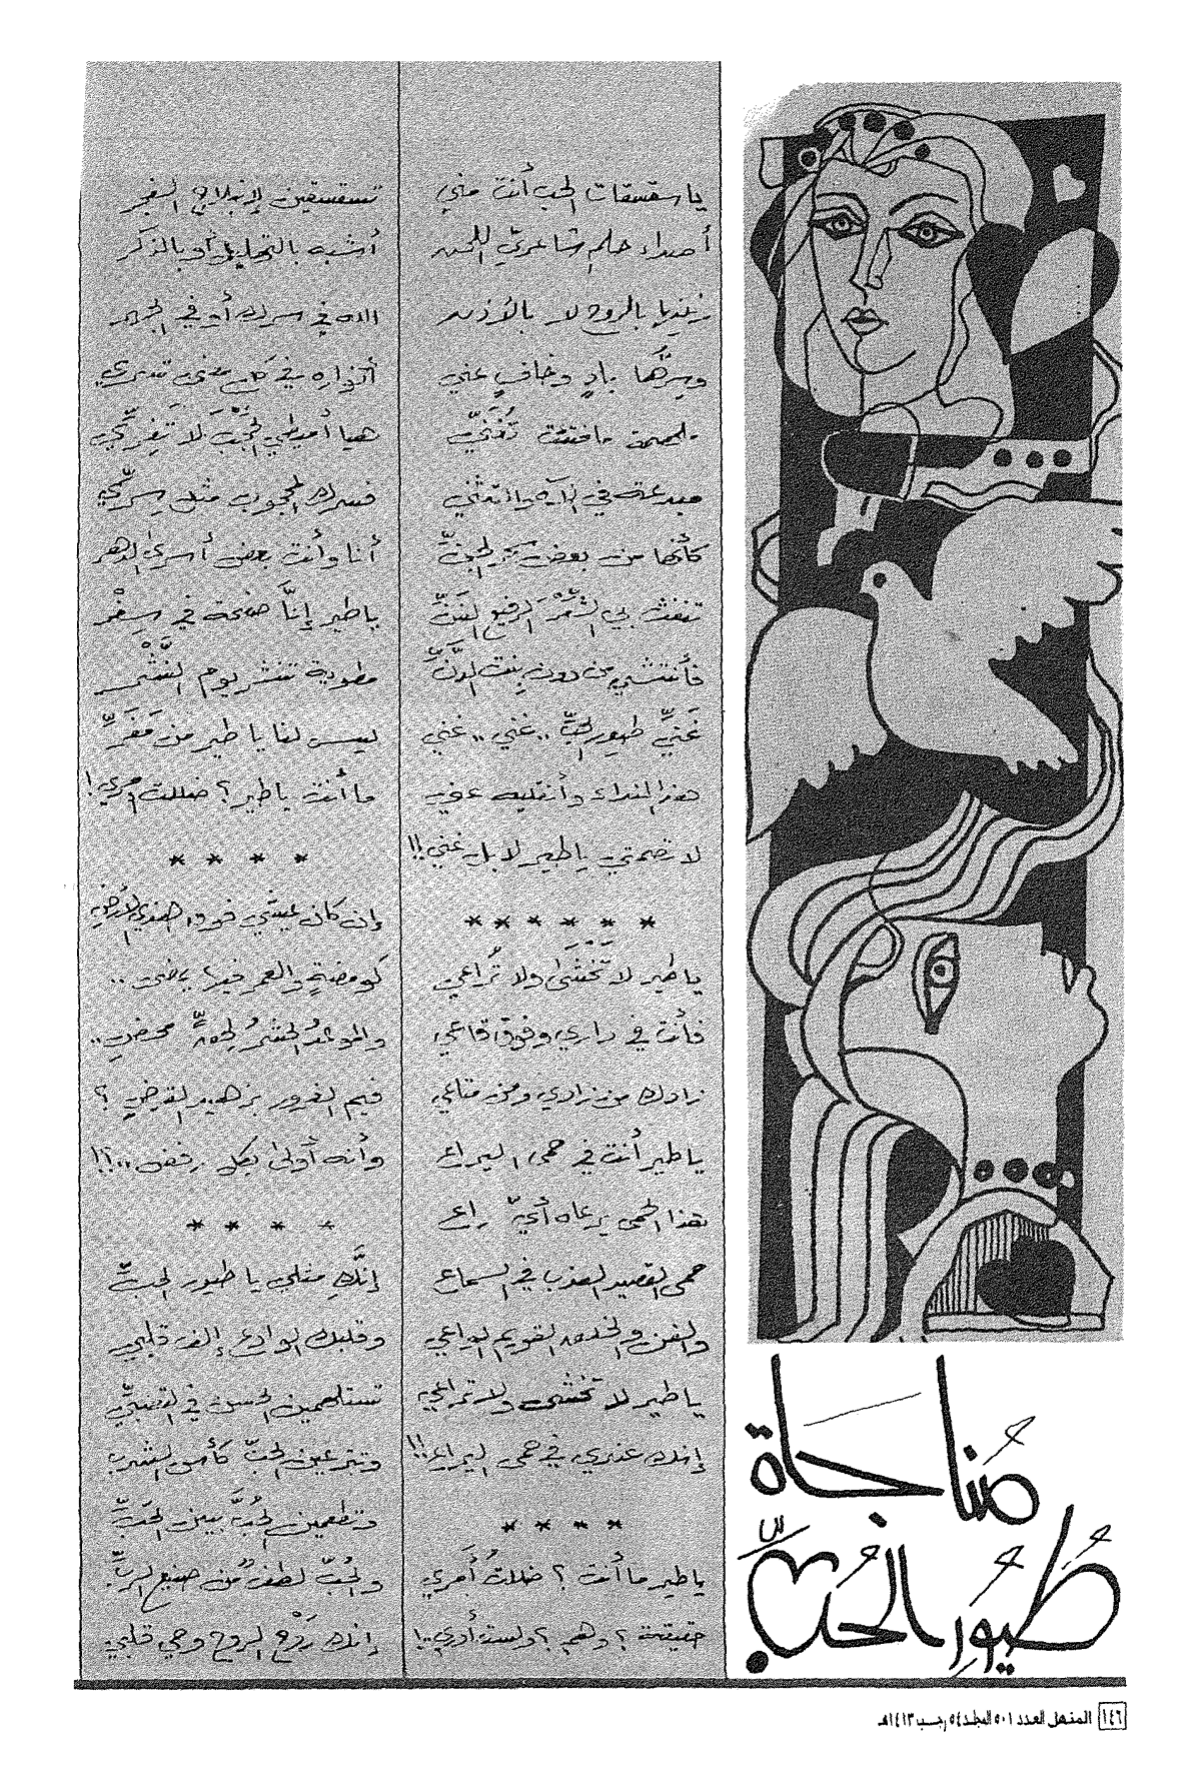 مُناجَاة
طُيُور الحُبِّ
يا سقسقات الحب أنت مني
أصداء حلم شاعريّ اللحن
بالروح لا بالأذن
وسِرُّها بادٍ وخافٍ عني
ملحمة ما فتئت تُغَنِّي
مبدعة في الآه والتثني
كأنها من بعض الجنِّ
تنفث بي الرفيع الفنِّ
فأنتشي من دون بنت الدَّنِّ
غَنِّي طيور الحبِّ .. غني .. غني
هذا النداء وأنقليه عني
لا تصمتي يا طير لا بل غني !!
* * * * * *
يا طير لا تَخْشَى ولا تُراعي
فأنت في داري وفوق قاعي
زادك من زادي ومن متاعي
يا طير أنت في حمى اليراع
هذا الحمى يرعاه أيّ راع
حمى القصيد العذب في السماع
والفن والخلق القويم الواعي
يا طير لا تخشى ولا تراعي
إنك عندي في حمى اليراع !!
* * * *
يا طير ما أنت ؟ ضللتُ أمري
حقيقة ؟ وهم ؟ ولست أدري !!
تسقسقين لانبلاج الفجر
أشبه بالتحليل أو بالذكر
الله في سرك أو في الجهر
أنواره في كل معنى تسري
هيا أميطي الحُجْبَ لا تَفِرِّي
فسرك المحجوب مثل سِرِّي
أنا وأنت بعض أسرى الدهر
يا طير إنَّا صفحة في سِفْر
مطوية تنشر يوم النَّشْر
ليس لنا يا طير من مَفَرِّ
ما أنت يا طير ؟ ضللت أمري !
* * * *
إن كان عيشي فوق هذي الأرضِ
كومضةٍ والعمر فيها يمضي ..
والموعدُ الحشرُ لحقٍّ محضِ ..
فيم الغرور بزهيد القرضِ ؟
وأنه أولى بكل رفض ..؟!!
* * * *
إنَّكِ مثلي يا طيور الحبِّ
وقلبك الوادع إلف قلبي
تستلهمين الحسن في
وتترعين الحبّ كأس الشرب
وتطعمين الحُبَّ بعض الحَبِّ
والحُبّ لطفٌ من صنيع الربِّ
إنك رَوْح الروح وحي قلبي
١٤٦ المنهل العدد ٥٠١ المجلد ٥٤ رجب ١٤١٣هـ